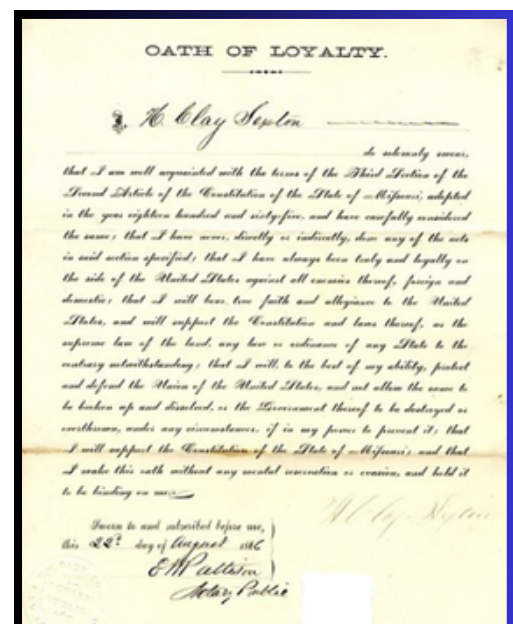 OATH OF LOYALTY.
I, H. Clay Sexton
do solemnly swear,
that I am well acquainted with the terms of the Third Section of the
Second Article of the Constitution of the State of Missouri, adopted
in the year eighteen hundred and sixty-five, and have carefully considered
the same; that I have never, directly or indirectly, done any of the acts
in said section specified; that I have always been truly and loyally on
the side of the United States against all enemies thereof, foreign and
domestic; that I will bear true faith and allegiance to the United
States, and will support the Constitution and laws thereof, as the
supreme law of the land, any law or ordinance of any State to the
contrary notwithstanding; that I will, to the best of my ability, protect
and defend the Union of the United States, and not allow the same to
be broken up and dissolved, or the Government thereof to be destroyed or
overthrown, under any circumstances, if in my power to prevent it; that
I will support the Constitution of the State of Missouri; and that
I make this oath without any mental reservation or evasion, and hold it
to be binding on me.
H Clay Sexton
Sworn to and subscribed before me,
this 22d day of August 1866
E W Pattison
Notary Public